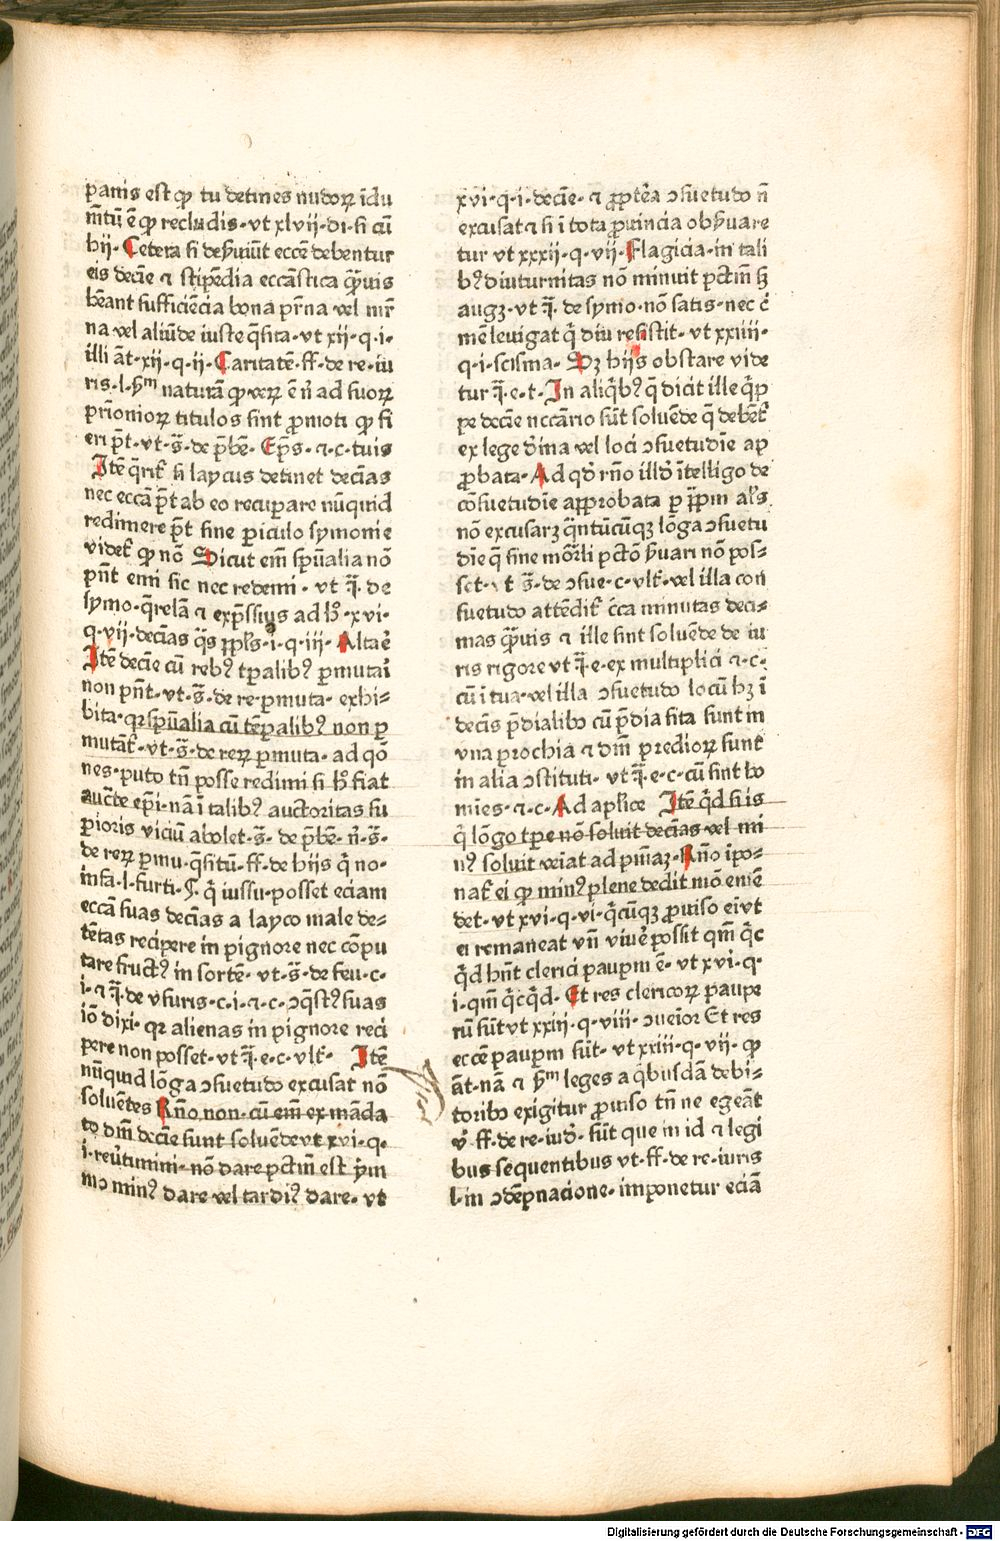 panis est ꝙ tu detines nudoꝝ īdu
m̄tū ē ꝙ recludis· vt xlvii·di·si cū
hij· Cetera si deẜuiūt ecc̄e debentur
eis decīe ⁊ stipēdia ecc̄astica q̄uis
hēant sufficiēcia bona pr̄na vel mr̄
na vel aliūde iuste q̄sita·vt xij·q·i·
illi āt·xij·q·ij·Caritatē·ff·de re·iu
ris·l·ẜm naturā ꝙ veꝝ ē n̄ ad suoꝝ
prīonioꝝ titulos sint ꝓmoti ꝙ si
eri p̄t·vt·s̄·de p̄bē· Ep̄s·⁊·c·tuis
Itē q̄rit᷑ si laycus detinet decīas
nec ecc̄a p̄t ab eo recuꝑare nūquid
redimere p̄t sine ꝑiculo symonie
videt᷑ ꝙ nō Sicut em̄ sp̄ualia nō
pn̄t emi sic nec redemi· vt ī·de
symo·q̄relā ⁊ exp̄ssius ad hͦ·xvi·
q·vij·decīas q̄s ꝓpl̄s·i·q·iij· Altaē
Itē decīe cū rebꝰ tꝑalibꝰ ꝑmutaī
non pn̄t·vt·s̄·de re·ꝑmuta·exhi⸗
bita·qꝛ sp̄ualia cū tēꝑalibꝰ non ꝑ
mutāt᷑·vt·s̄·de reꝝ ꝑmuta·ad qō
nes·puto tn̄ posse redimi si hͦ fiat
auctē ep̄i·nā ī talibꝰ auctoritas su
ꝑioris viciū abolet·s̄·de p̄bē·n̄·s̄·
de reꝝ ꝑmu·q̄sitū·ff·de hijs q̄ no·
infa·l·furti·§·q̄ iussu·posset eciam
ecc̄a suas decīas a layco male de⸗
tētas recipere in pignore nec cōpu
tare fructꝰ in sortē·vt·s̄·de feu·c·
i·⁊ ī·de vsuris·c·i·⁊·c·ꝯq̄stꝰ suas
iō dixi·qꝛ alienas in pignore reci
pere non posset·vt ī·e·c·vlt᷑· Itē
nūquid lōga ꝯsuetudo excusat nō
soluētes Rn̄o non·cū em̄ ex māda
to dn̄i decīe sunt soluēde vt xvi·q·
i·reūtimini·nō dare pctm̄ est ẜm
mo minꝰ dare vel tardiꝰ dare·vt
xvi·q·i·decīe·⁊ ꝓptēa ꝯsuetudo n̄
excusat ⁊ si ī tota ꝓuincia obẜuare
tur vt xxxij·q·vij·Flagicia·in tali
bꝰ diuturnitas nō minuit pctm̄ sꝫ
augꝫ·vt ī·de symo·nō satis·nec c̄
mē leuigat q̄ diu resistit·vt xxiiij·
q·i·scisma· Sꝫ hijs obstare vide
tur ī·e·t·In aliq̄bꝰ q̄ dicit ille q̄ꝑ
pe decīe nccārio sūt soluēde q̄ debēt᷑
ex lege dīna vel loci ꝯsuetudīe ap
ꝓbata·Ad qd̄ rn̄o illd̄ ītelligo de
cōsuetudīe apꝓbata ꝑ ꝓꝑm al̄s
nō excusarꝫ q̄ntūcūqꝫ lōga ꝯsuetu
dīe q̄ sine mōrli pctō ẜuari nō pos⸗
set·vt s̄·de ꝯsue·c·vlt᷑·vel illa con
suetudo attēdit᷑ c̄ca minutas deci⸗
mas q̄uis ⁊ ille sint soluēde de iu
ris rigore vt ī·e·ex multiplici ⁊·c·
cū ī tua·vel illa ꝯsuetudo locū hꝫ ī
decīs p̄dialibꝰ cū p̄dia sita sunt in
vna parochia ⁊ dn̄i prediorꝝ sunt
in alia ꝯstituti·vt ī·e·c·cū sint ho
mīes·⁊·c·Ad aplīce Itē q̄d si is
q̄ lōgo tꝑe nō soluit decīas vel mi
nꝰ soluit veīat ad pn̄iaꝫ·Rn̄o īpo⸗
nat᷑ ei ꝙ minꝰ plene dedit mō emē
det·vt xvi·q·vi·q̄cūqꝫ ꝓuiso eīvt
ei remaneat vn̄ viuē possit qm̄ q̄c
q̄d hn̄t clerici pauꝑm ē·vt xvi·q·
i·qm̄ q̄cq̄d·Et res clericoꝝ pauꝑe
rū sūt vt xxiij·q·viij·ꝯueīor Et res
ecc̄e pauꝑm sūt·vt xxiij·q·vij·ꝙ
āt·nā ⁊ ẜm leges a q̄busdā debi⸗
toribꝰ exigitur ꝓuiso tn̄ ne egeāt
v̄ ff·de re·iud̄·sūt que in id ⁊ legi
bus sequentibus vt·ff·de re·iuris
l·in ꝯdēpnacione·imponetur eciā
Digitalisierung gefördert durch die Deutsche Forschungsgemeinschaft - DFG